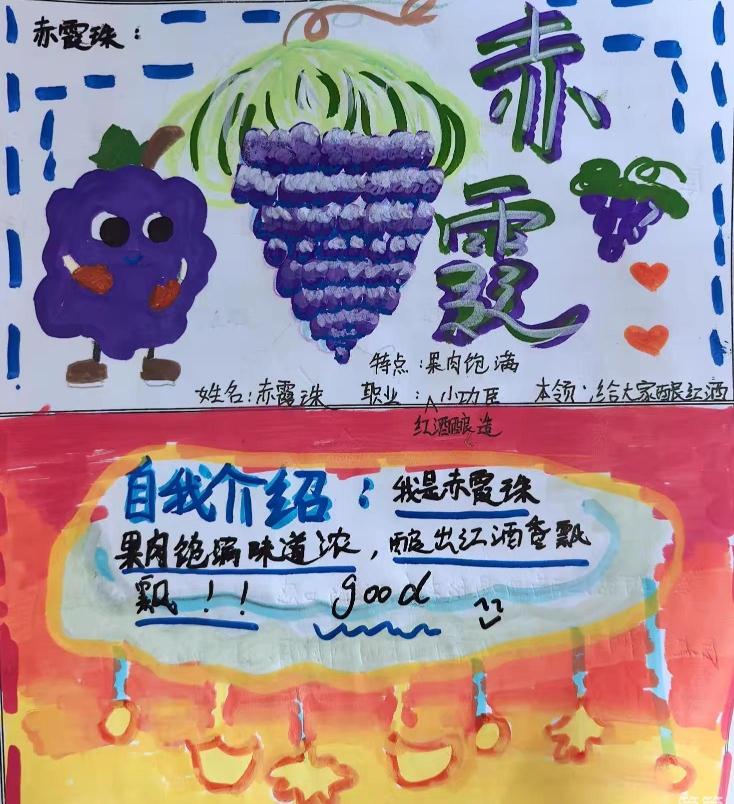 赤霞珠：
赤
霞
特点：果肉饱满
姓名：赤霞珠 职业：红酒酿造小功臣 本领：给大家酿红酒
自我介绍：我是赤霞珠
果肉饱满味道浓，酿出红酒香飘
飘！！ good